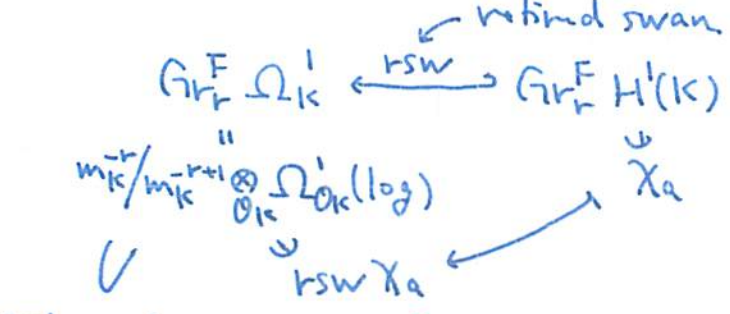 retined swan
Gr_r^F Ω_K^1 ← rsw → Gr_r^F H^1(K)
"
m_K^{-r}/m_K^{-r+1} ⊗_{O_K} Ω^1_{O_K}(log)
χ_a
rsw χ_a